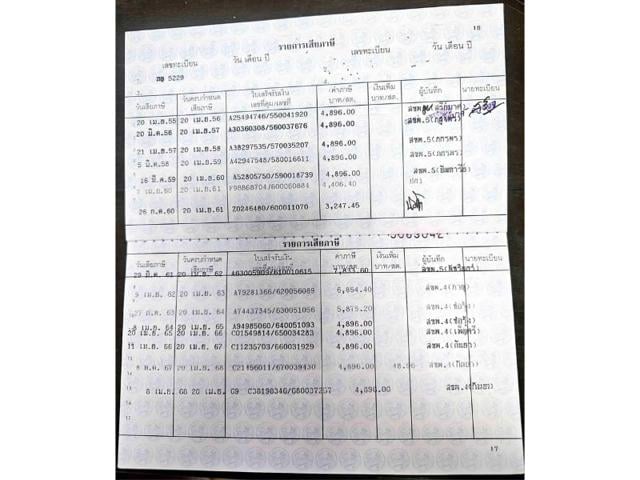 18
รายการเสียภาษี
เลขทะเบียน วัน เดือน ปี เลขทะเบียน วัน เดือน ปี
5229
วันเสียภาษี วันครบกำหนดเสียภาษี ใบเสร็จรับเงิน เล่มที่คุม/เลขที่ ค่าภาษี บาท/สต. เงินเพิ่ม บาท/สต. ผู้บันทึก นายทะเบียน
20 เม.ย.55 20 เม.ย.56 A25494746/550041920 4,896.00
20 มี.ค.56 20 เม.ย.57 A30360308/560037676 4,896.00 สขพ.5
21 เม.ย.57 20 เม.ย.58 A38297535/570035207 4,896.00 สขพ.5
5 มี.ค.58 20 เม.ย.59 A42947548/580016611 4,896.00 สขพ.5
16 มี.ค.59 20 เม.ย.60 A52805750/590018739 4,896.00 สขพ.5
เม.ย.60 20 เม.ย.61 F98868704/600060884 4,406.40
26 ก.ค.60 20 เม.ย.61 Z0246480/600011070 3,247.45
รายการเสียภาษี
วันเสียภาษี วันครบกำหนดเสียภาษี ใบเสร็จรับเงิน เล่มที่คุม/เลขที่ ค่าภาษี บาท/สต. เงินเพิ่ม บาท/สต. ผู้บันทึก นายทะเบียน
29 มี.ค. 61 20 เม.ย. 62 A63005909/610010615 7,833.60 สขพ.5
9 เม.ย. 62 20 เม.ย. 63 A79281366/620056089 6,854.40 สขพ.4
27 ก.ค. 63 20 เม.ย. 64 A74437345/630051056 5,875.20 สขพ.4
8 เม.ย. 64 20 เม.ย. 65 A94985060/640051093 4,896.00 สขพ.4
20 เม.ย. 65 20 เม.ย. 66 C01549814/650034283 4,896.00 สขพ.4
11 เม.ย. 66 20 เม.ย. 67 C11235703/660031929 4,896.00 สขพ.4(กันยา)
8 พ.ค. 67 20 เม.ย. 68 C21496011/670039430 4,896.00 48.96 สขพ.4(กันยา)
8 เม.ย. 68 20 เม.ย. 69 C38190346/680037267 4,896.00 สขพ.4(กันยา)
17